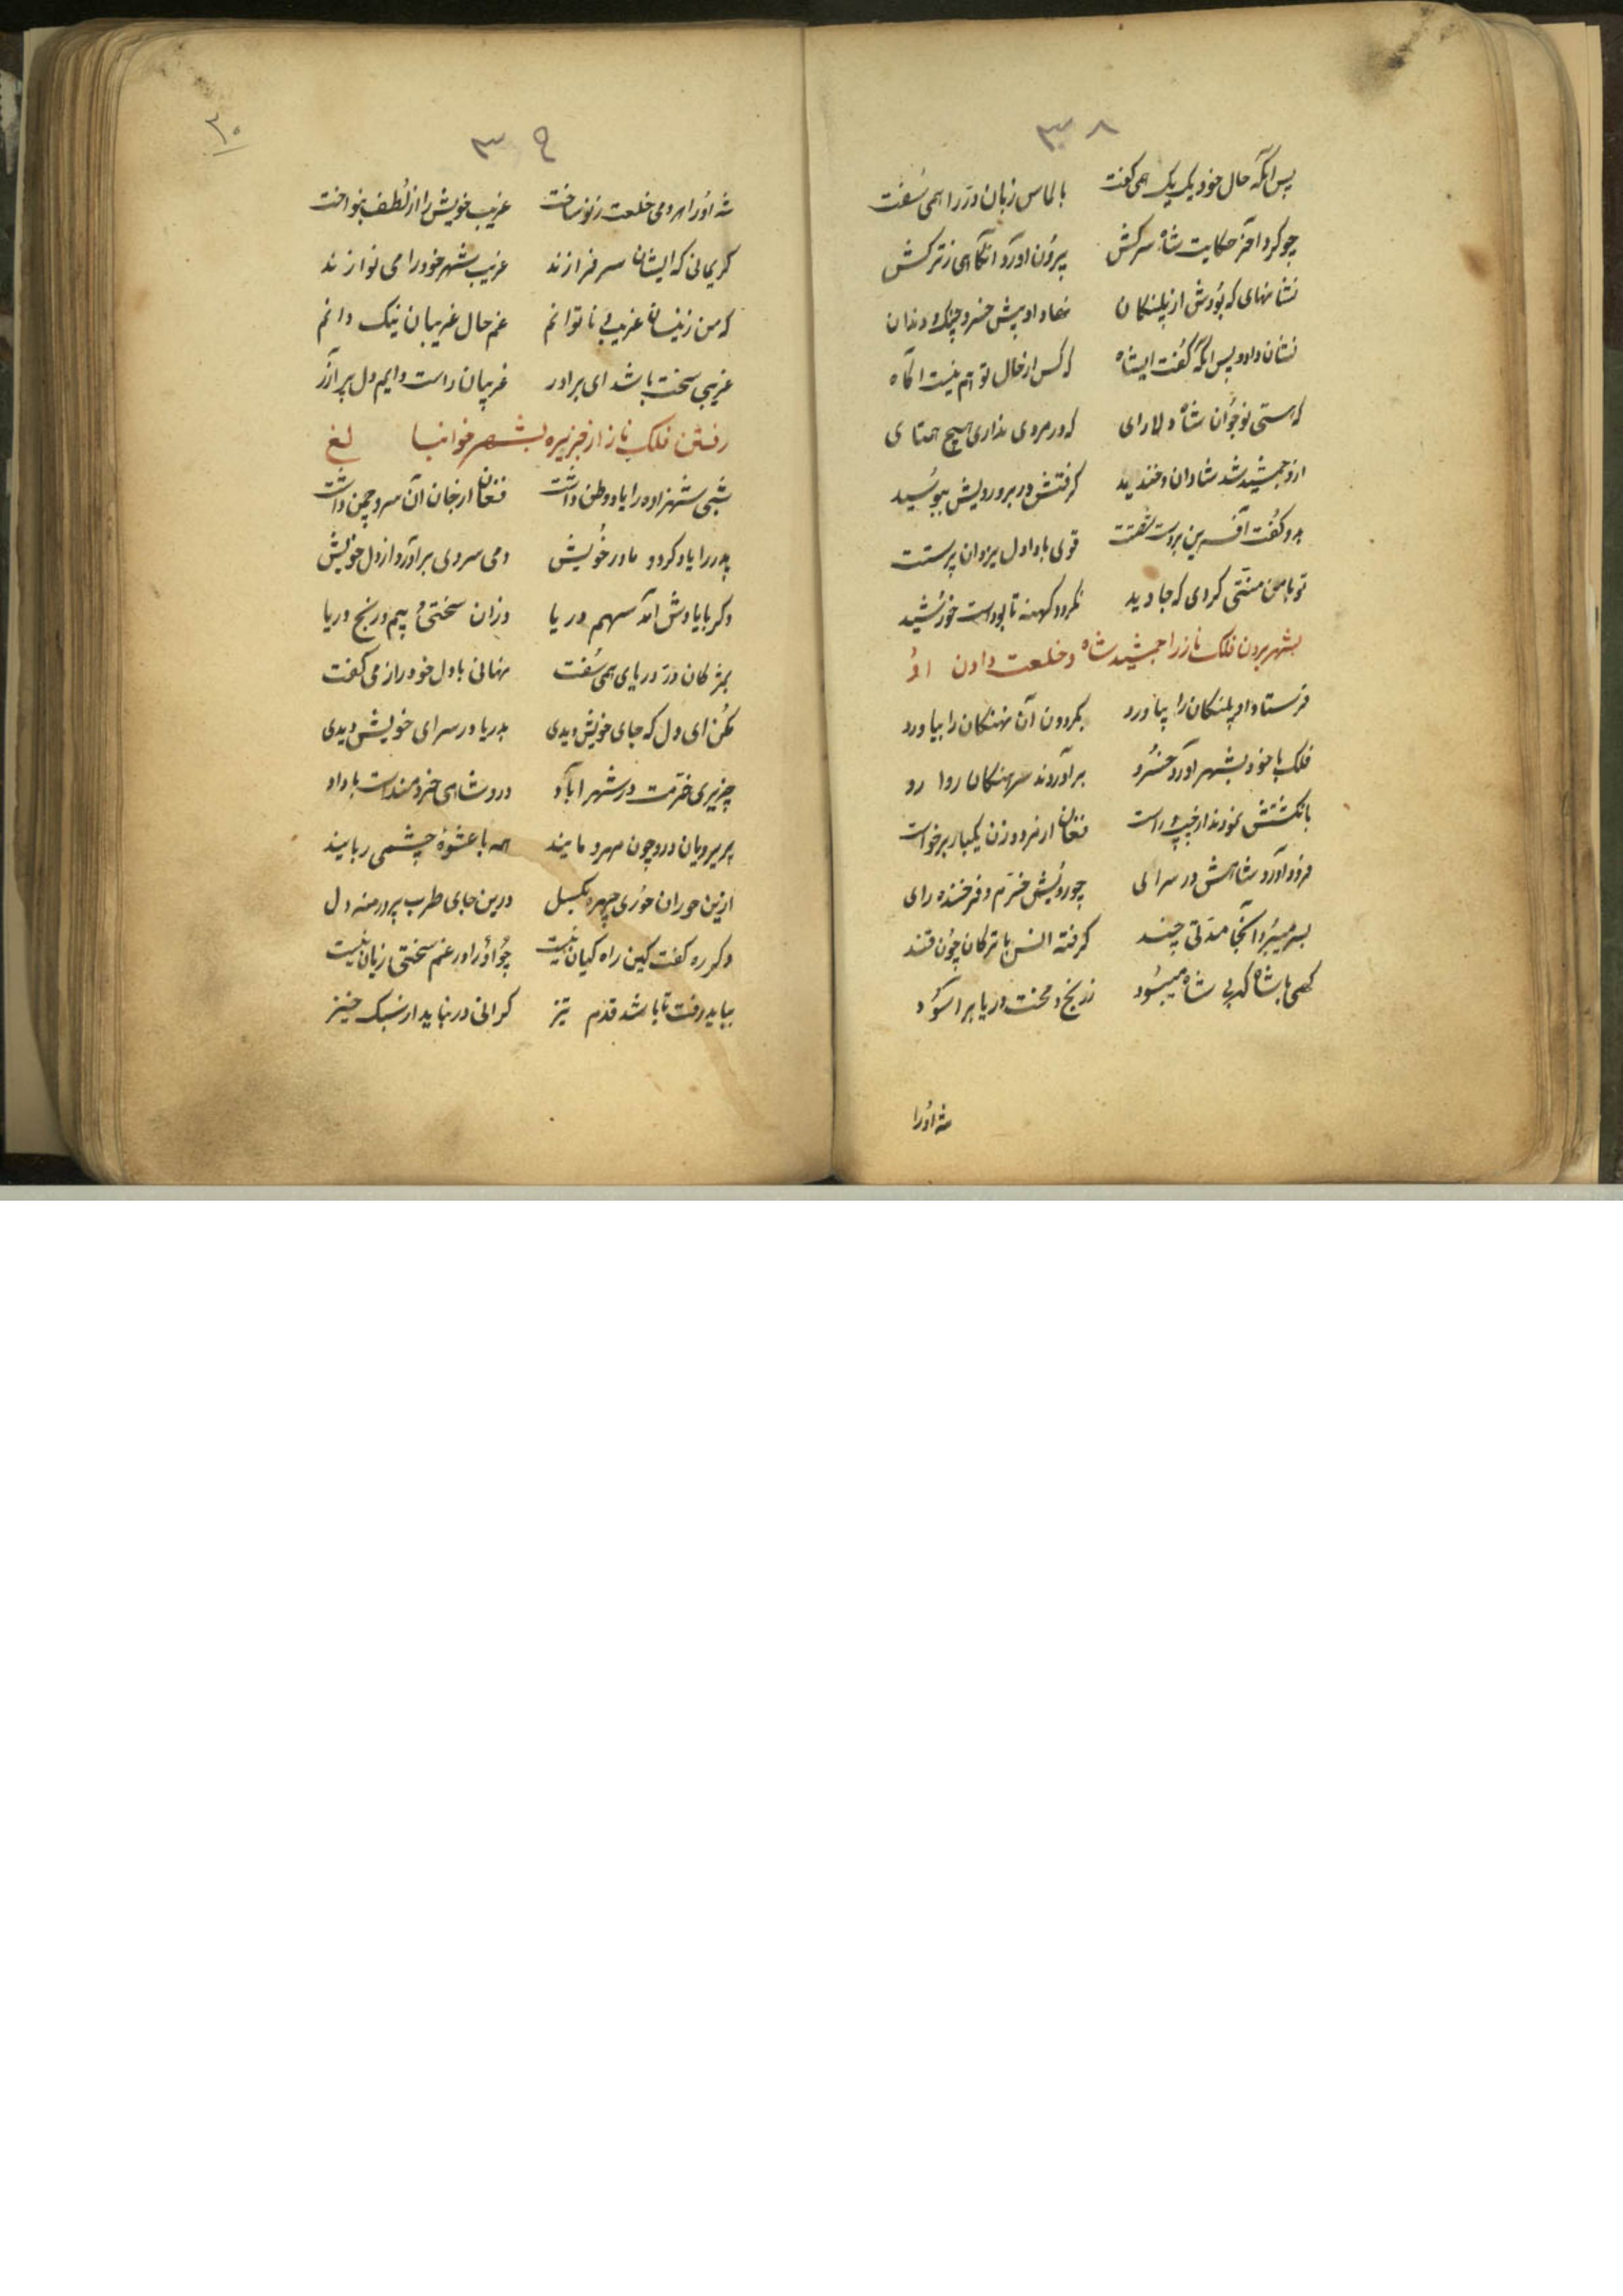 ۳۸
پس آنگه حال خود یک یک همی گفت بالماس زبان در را همی سُفت
چو کرد آخر حکایت شاه سرکش بیرون آورد آنگاهی ز ترکش
نشانهای که بودش از پلنکان نهاد او پیش خسرو چنک و دندان
نشان داد و پس آنگه گفت ایشاه که کس از حال تو هم نیست آگاه
که هستی نوجوان شاه دلارای که در مردی نداری هیچ همتای
ازو جمشید شد شادان و خندید گرفتش در بر و رویش ببوسید
بدو گفت آفرین بر دست قوی بادا دل یزدان پرستت
تو با من منتی کردی که جاوید نگردد کهنه تا بودست خورشید
بشهر بردن فلک ناز را جمشید شاه و خلعت دادن اوُ
فرستاد او پلنکان را بیاورد بگردون آن نهنکان را بیاورد
فلک با خود بشهر آورد خسرو برآوردند سرهنکان روا رو
بانگشتش نمودند از چپ و راست فغان از مرد و زن یکبار برخواست
فرود آورد شاهش در سرای چو رویش خرّم و فرخنده رای
بسر میبرد آنجا مدّتی چند گرفته انس با ترکان چون قند
گهی با شاه گه بی شاه میبُود ز رنج و محنت دریا بر آسود
شه اورا
۳۹
۲۰
شه اورا هردمی خلعت ز نو ساخت غریب خویش را از لُطف بنواخت
کریمانی که ایشان سرفرازند غریب شهر خود را می نوازند
که من زینسان غریبی ناتوانم غم حال غریبان نیک دانم
غریبی سخت باشد ای برادر غریبان راست دایم دل پر آذر
رفتن فلک ناز از جزیره بشهر
شبی شهزاده را یاد وطن داشت فغان از جان آن سرو چمن داشت
پدر را یاد کرد و مادر خویش دمی سردی برآورد از دل خویش
دگر با یادش آمد سهم دریا وزان سختی و بیم و رنج دریا
بمژگان در دریای همی سُفت نهانی با دل خود راز می گفت
مکن ای دل که جای خویش دیدی بدریا در سرای خویش دیدی
جزیری خرّمت در شهر آباد درو شاهی خردمندست با داد
پریرویان درو چون مهر و مایند همه با عشوهٔ چشمی ربایند
ازین حوران حوری چهره مگسل درین جای طرب پرور منه دل
دگر ره گفت کین راه کیان نیست چو اورا در غم سختی زیان نیست
بباید رفت تا باشد قدم تیز گرانی در نیاید از سبک خیز